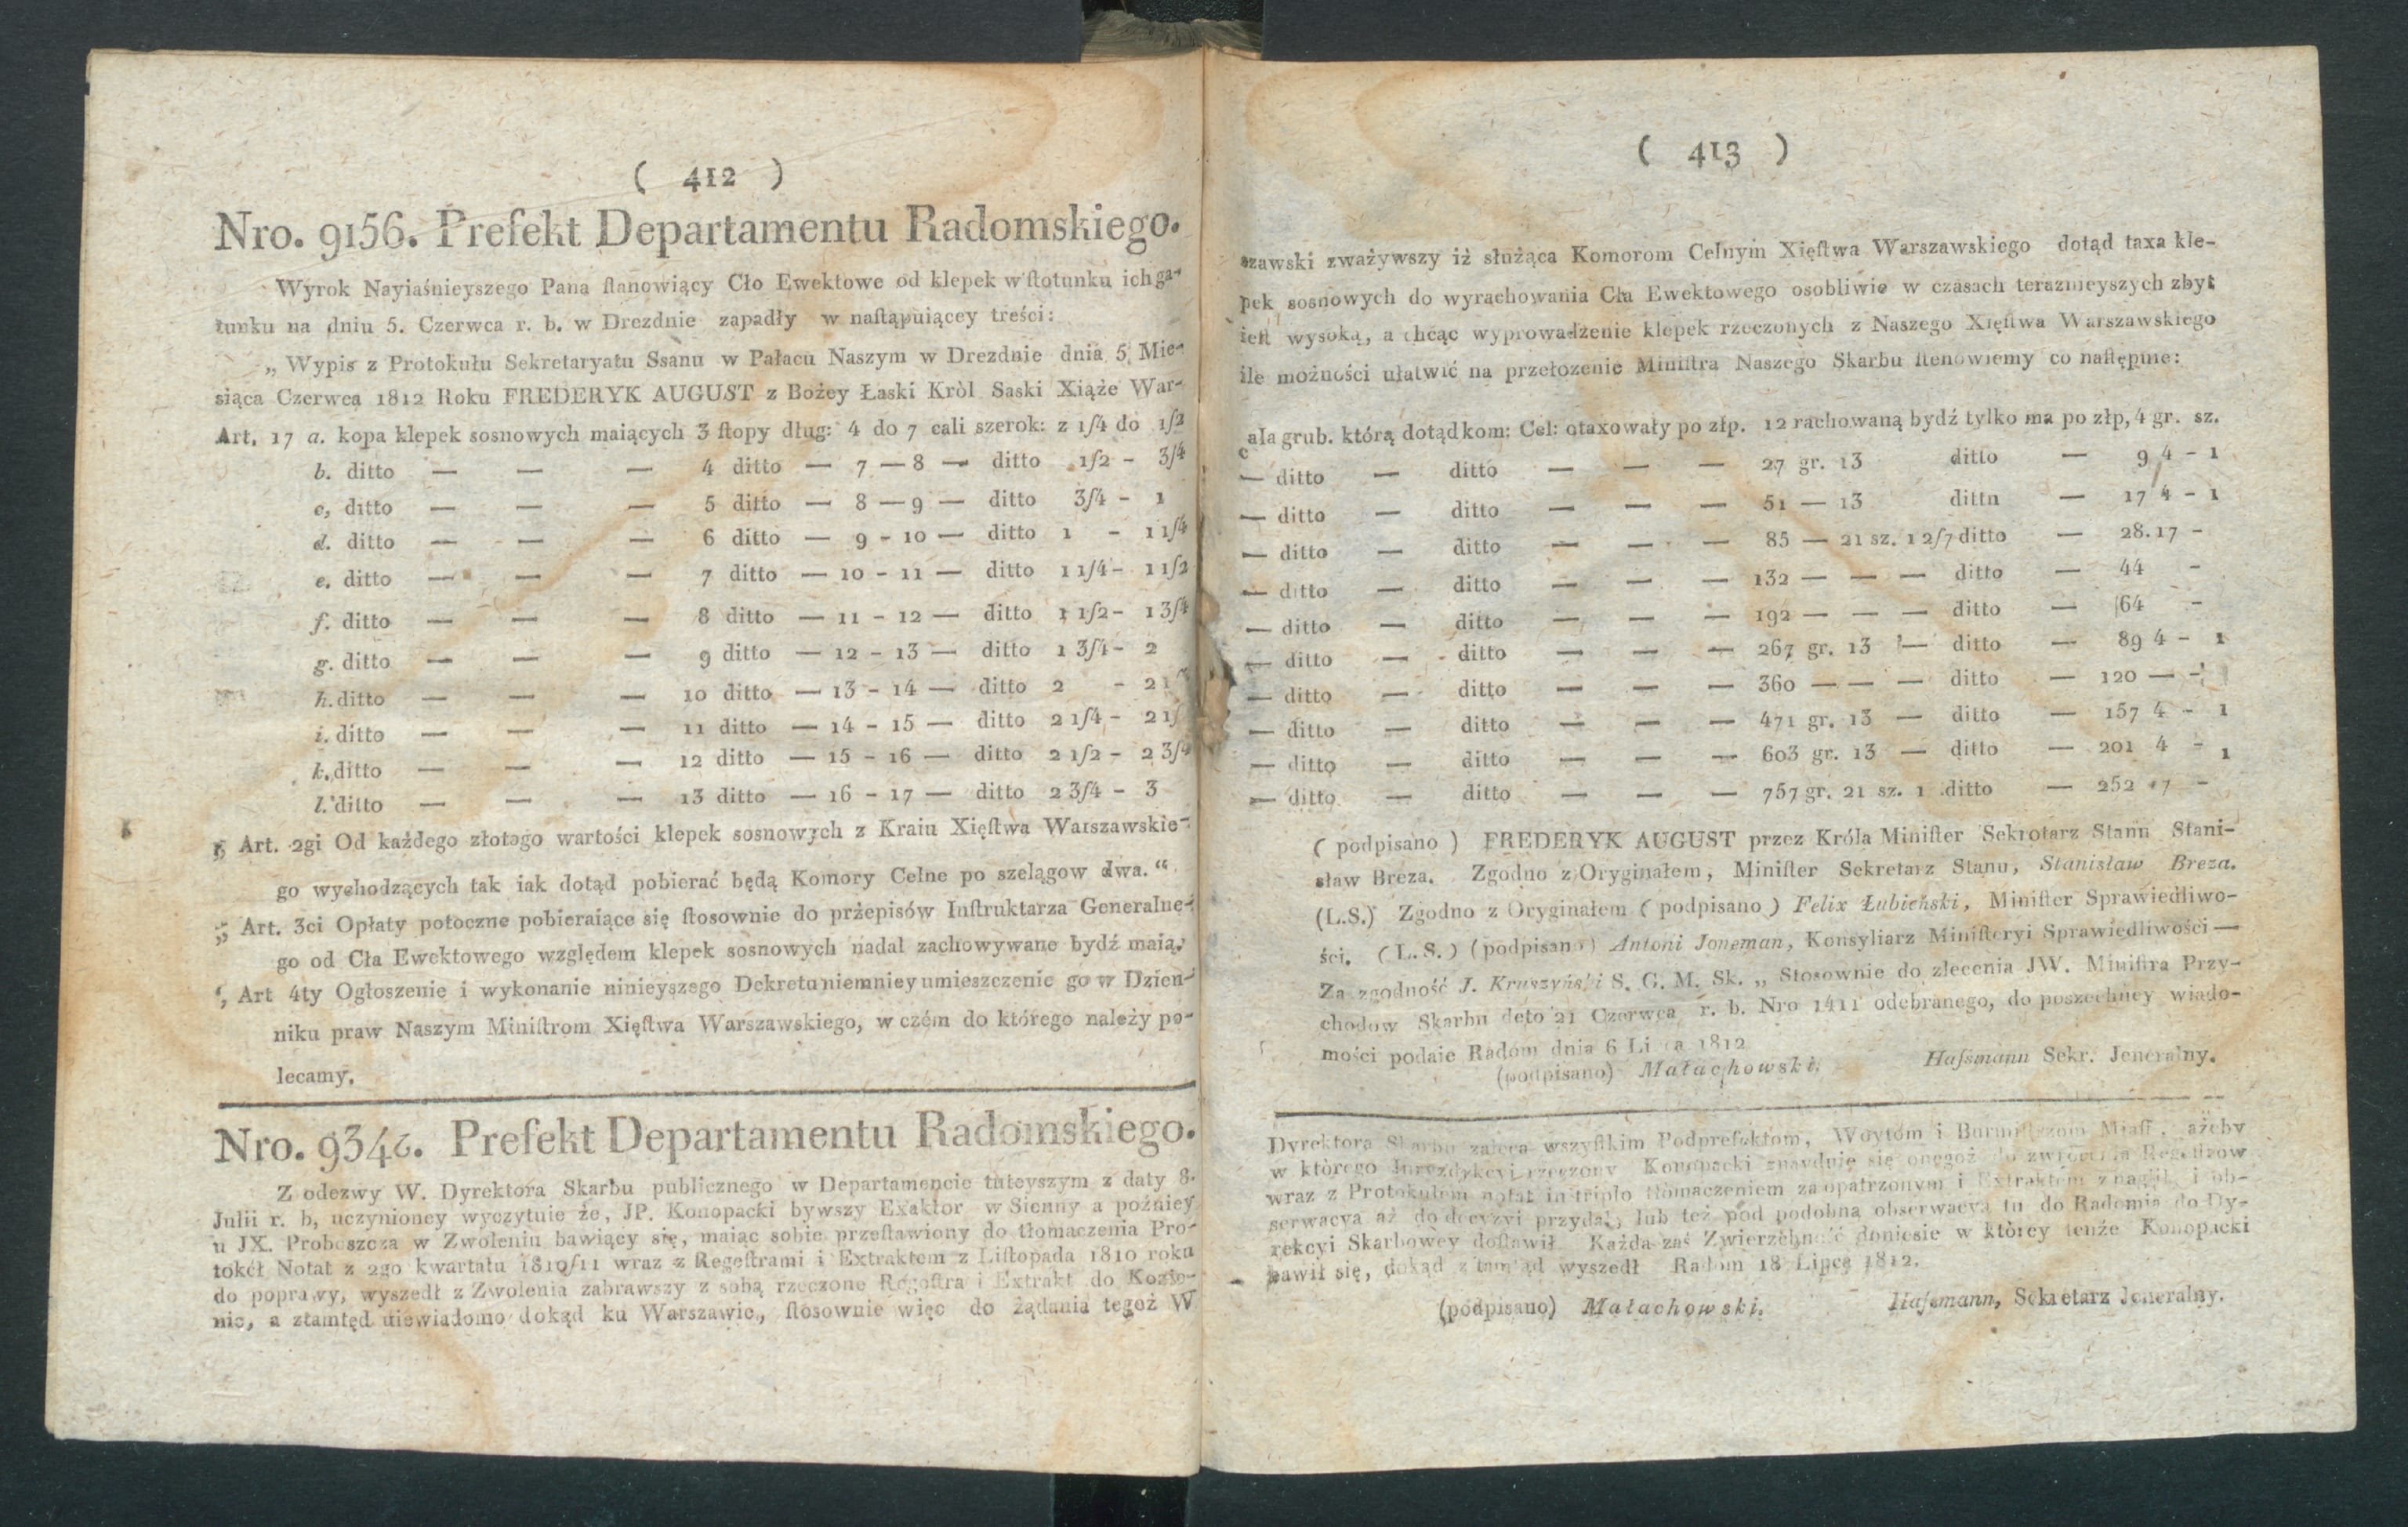 ( 412 )
Nro. 9156. Prefekt Departamentu Radomskiego.
Wyrok Nayiaśnieyszego Pana ſtanowiący Cło Ewektowe od klepek w ſtotunku ich ga-
tunku na dniu 5. Czerwca r. b. w Drezdnie zapadły w naſtąpuiącey treści:
„ Wypis z Protokułu Sekretaryatu Ssanu w Pałacu Naszym w Drezdnie dnia 5. Mie-
siąca Czerwca 1812 Roku FREDERYK AUGUST z Bożey Łaski Kròl Saski Xiąże War-
Art. 17 a. kopa klepek sosnowych maiących 3 ſtopy dług: 4 do 7 cali szerok: z 1ſ4 do 1ſ2
b. ditto — — — 4 ditto — 7 — 8 — ditto 1ſ2 - 3ſ4
c, ditto — — — 5 ditto — 8 — 9 — ditto 3ſ4 - 1
d. ditto — — — 6 ditto — 9 - 10 — ditto 1 - 1 1ſ4
e. ditto — — — 7 ditto — 10 - 11 — ditto 1 1ſ4 - 1 1ſ2
f. ditto — — — 8 ditto — 11 - 12 — ditto 1 1ſ2 - 1 3ſ4
g. ditto — — — 9 ditto — 12 - 13 — ditto 1 3ſ4 - 2
h. ditto — — — 10 ditto — 13 - 14 — ditto 2 - 2 1
i. ditto — — — 11 ditto — 14 - 15 — ditto 2 1ſ4 - 2 1ſ
k. ditto — — — 12 ditto — 15 - 16 — ditto 2 1ſ2 - 2 3ſ4
l. ditto — — — 13 ditto — 16 - 17 — ditto 2 3ſ4 - 3
Art. 2gi Od każdego złotego wartości klepek sosnowych z Kraiu Xięſtwa Warszawskie-
go wychodzących tak iak dotąd pobierać będą Komory Celne po szelągow dwa.“
„ Art. 3ci Opłaty potoczne pobieraiące się ſtosownie do przepisów Inſtruktarza Generalne-
go od Cła Ewektowego względem klepek sosnowych nadal zachowywane bydź maią,
Art 4ty Ogłoszenie i wykonanie ninieyszego Dekretu niemniey umieszczenie go w Dzien-
niku praw Naszym Miniſtrom Xięſtwa Warszawskiego, w czém do którego należy po-
lecamy.
Nro. 934. Prefekt Departamentu Radomskiego.
Z odezwy W. Dyrektora Skarbu publicznego w Departamencie tuteyszym z daty 8.
Julii r. b, uczynioney wyczytuie że, JP. Konopacki bywszy Exaktor w Sienny a poźniey
u JX. Proboszcza w Zwoleniu bawiący się, maiąc sobie przeſtawiony do tłomaczenia Pro-
tokół Notat z 2go kwartału 1810ſ11 wraz z Regeſtrami i Extraktem z Liſtopada 1810 roku
do poprawy, wyszedł z Zwolenia zabrawszy z sobą rzeczone Regeſtra i Extrakt do Kozie-
nic, a ztamtęd niewiadomo dokąd ku Warszawie, ſtosownie więc do żądania tegoż W
( 413 )
szawski zważywszy iż służąca Komorom Celnym Xięſtwa Warszawskiego dotąd taxa kle-
pek sosnowych do wyrachowania Cła Ewektowego osobliwie w czasach teraznieyszych zbyt
ieſt wysoką, a chcąc wyprowadzenie klepek rzeczonych z Naszego Xięſtwa Warszawskiego
ile możności ułatwić na przełozenie Miniſtra Naszego Skarbu ſtenowiemy co naſtępuie:
cala grub. którą dotąd kom: Cel: otaxowały po złp. 12 rachowaną bydź tylko ma po złp, 4 gr. sz.
— ditto — ditto — — — 27 gr. 13 ditto — 9 4 - 1
— ditto — ditto — — — 51 — 13 dittn — 17 4 - 1
— ditto — ditto — — — 85 — 21 sz. 1 2ſ7 ditto — 28. 17 -
— ditto — ditto — — — 132 — — — ditto — 44 -
— ditto — ditto — — — 192 — — — ditto — 64 -
— ditto — ditto — — — 267 gr. 13 — ditto — 89 4 - 1
— ditto — ditto — — — 360 — — — ditto — 120 — -
— ditto — ditto — — — 471 gr. 13 — ditto — 157 4 - 1
— ditto — ditto — — — 603 gr. 13 — ditto — 201 4 - 1
— ditto — ditto — — — 757 gr. 21 sz. 1 ditto — 252 17 -
( podpisano ) FREDERYK AUGUST przez Króla Miniſter Sekrotarz Stann Stani-
sław Breza. Zgodno z Oryginałem, Miniſter Sekretarz Stanu, Stanisław Breza.
(L.S.) Zgodno z Oryginałem ( podpisano ) Felix Łubieński, Miniſter Sprawiedliwo-
ści. ( L. S. ) (podpisano) Antoni Joneman, Konsyliarz Miniſteryi Sprawiedliwości —
Za zgodność J. Kruszyński S. G. M. Sk. „ Stosownie do zlecenia JW. Miniſtra Przy-
chodow Skarbu deto 21 Czerwca r. b. Nro 1411 odebranego, do poszechney wiado-
mości podaie Radom dnia 6 Lipca 1812
(podpisano) Małachowski. Haſsmann Sekr. Jeneralny.
Dyrektora Skarbu zaleca wszyſtkim Podprefektom, Woytom i Burmiſtrzom Miaſt, ażeby
w którego Juryzdykcyi rzeczony Konopacki znayduie się onegoż do zwrócenia Regeſtrow
wraz z Protokułem notat in triplo tłomaczeniem zaopatrzonym i Extraktem z nagłil i ob-
serwacya aż do decyzyi przydał, lub też pod podobną obserwacyą tu do Radomia do Dy-
rekcyi Skarbowey doſtawił Każda zaś Zwierzchność doniesie w którcy tenże Konopacki
bawił się, dokąd z tamtąd wyszedł Radom 18 Lipca 1812.
(podpisano) Małachowski. Haſsmann, Sekretarz Jeneralny.